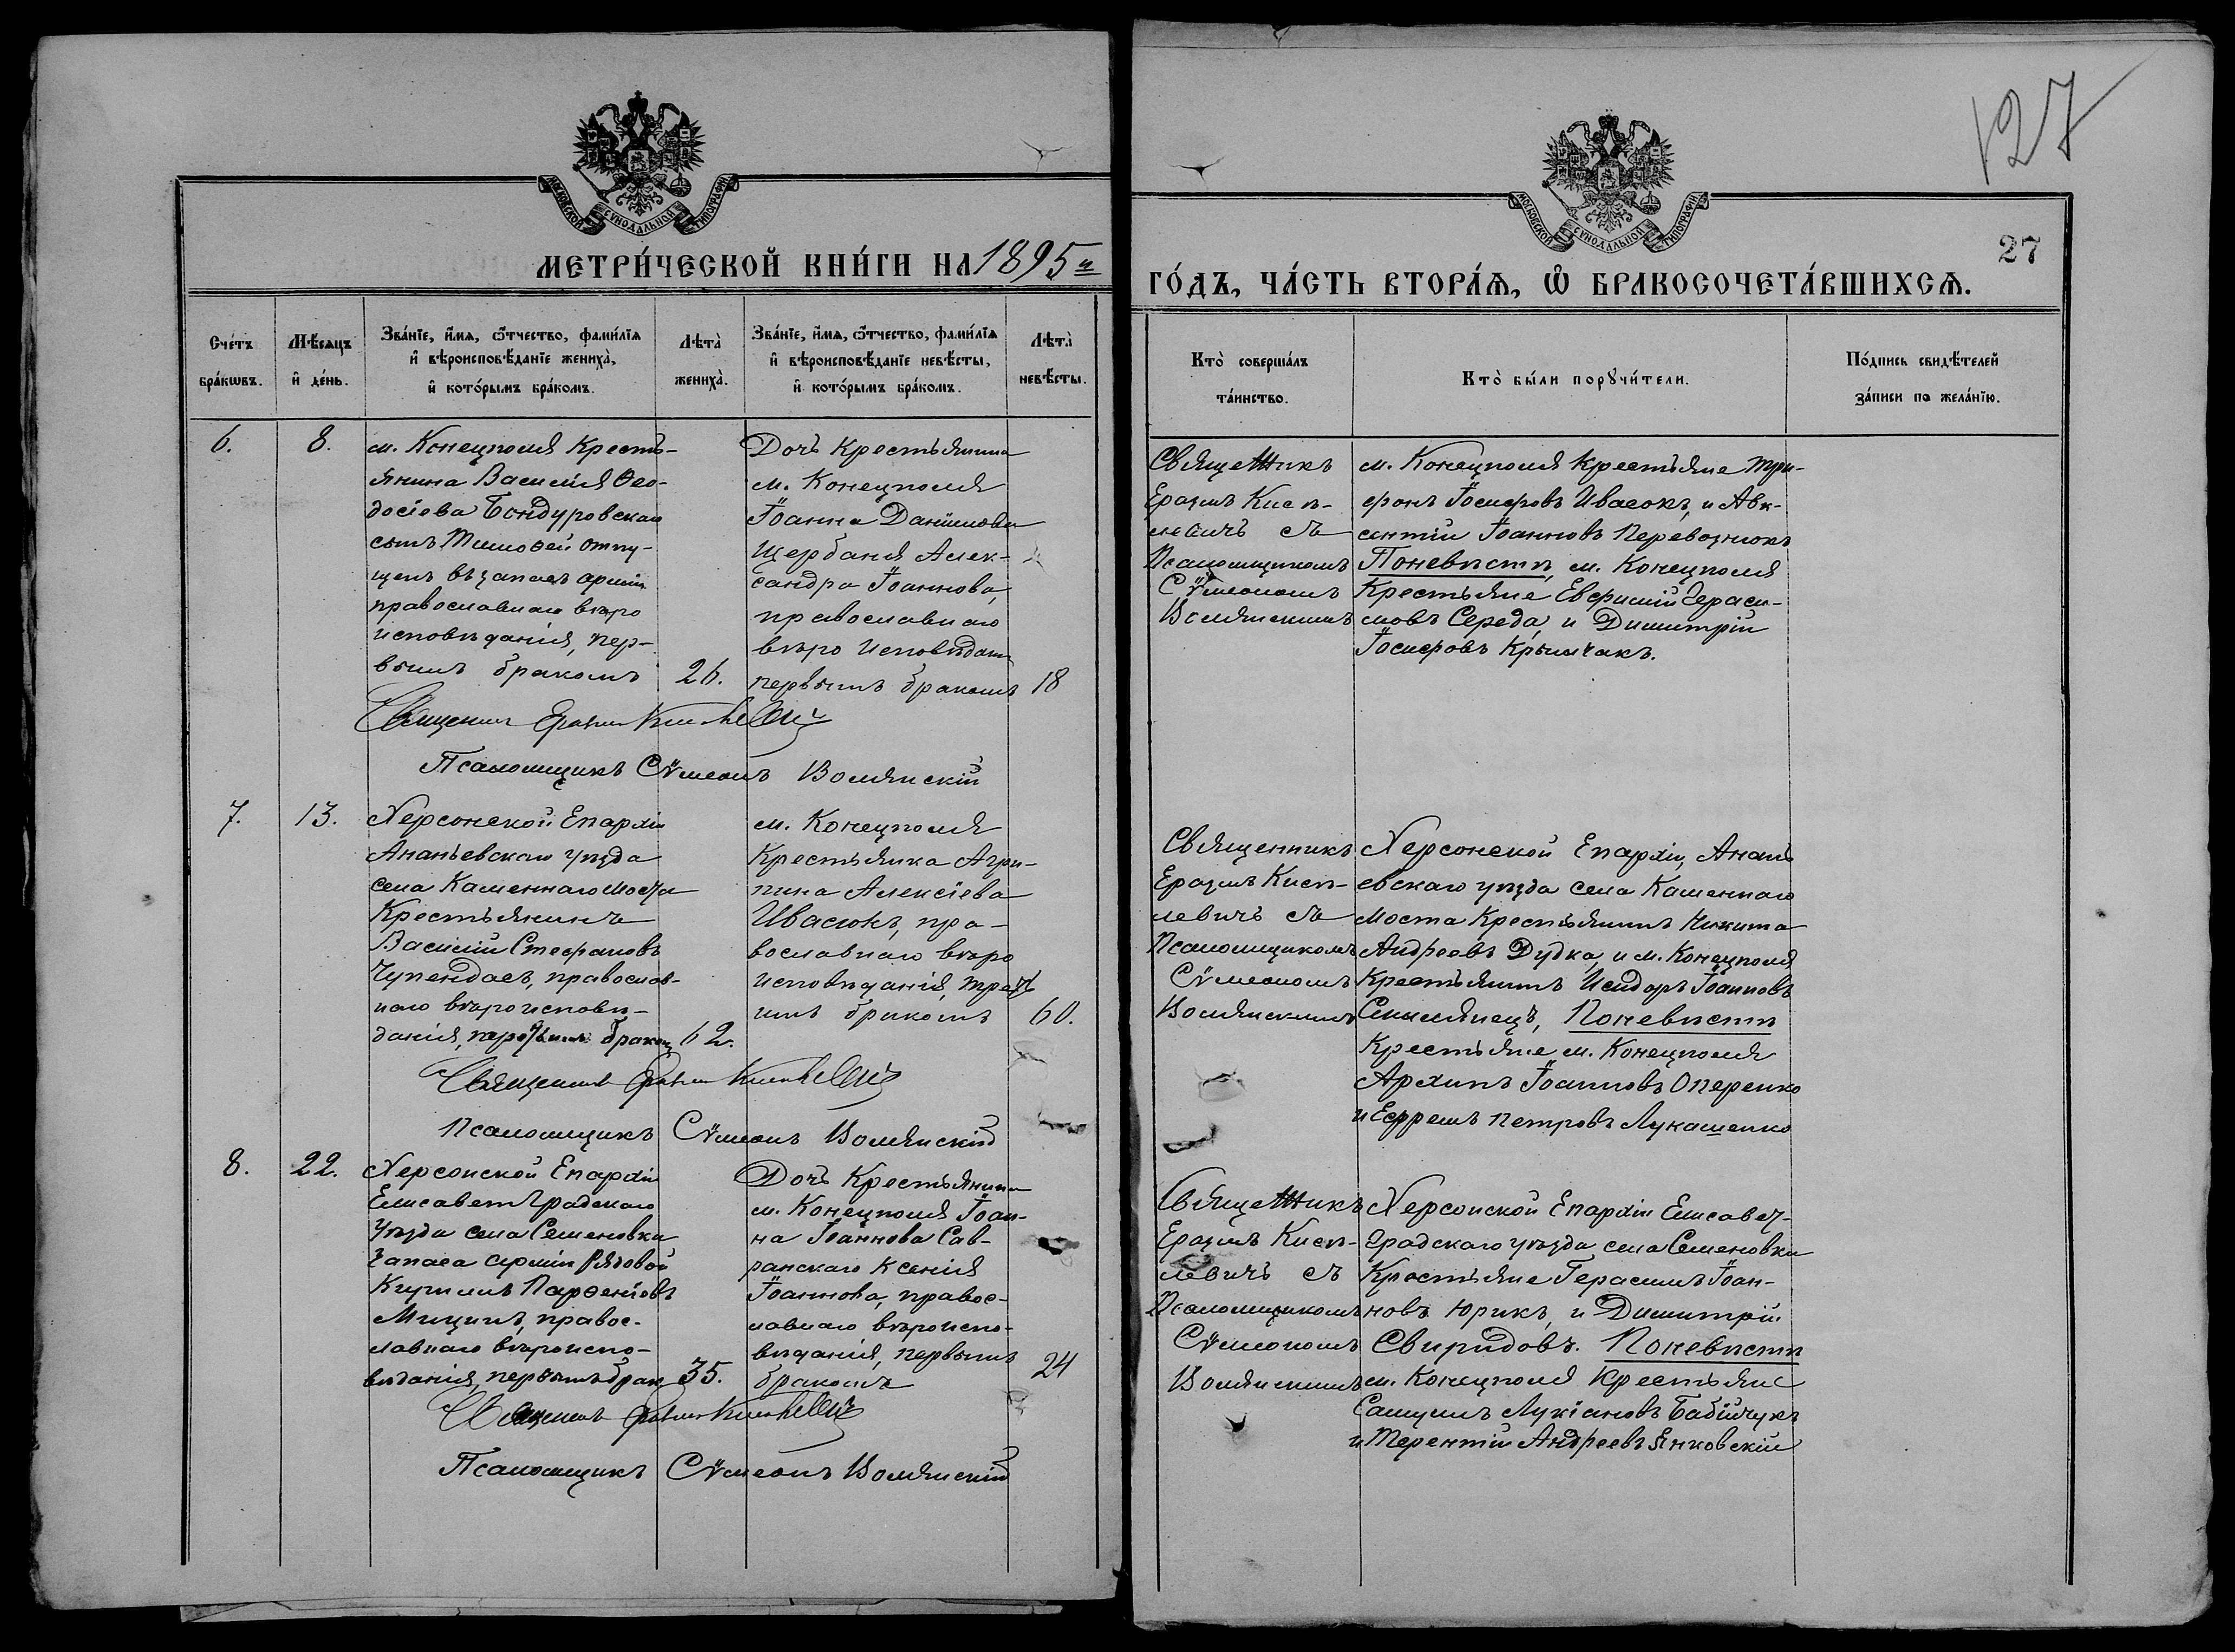 МОСКОВСКОЙ СѴНОДАЛЬНОЙ ТИПОГРАФІИ
МЕТРИ́ЧЕСКОЙ КНИ́ГИ НА 1895 й
Сче́тъ бра́кѡвъ.
Мѣ́сѧцъ и҆ де́нь.
Зва́нїе, и҆́мѧ, ѻ҆́тчество, фами́лїѧ
и҆ вѣроисповѣ́данїе жениха̀,
и҆ кото́рымъ бра́комъ.
Лѣта̀ жениха̀.
Зва́нїе, и҆́мѧ, ѻ҆́тчество, фами́лїѧ
и҆ вѣроисповѣ́данїе невѣ́сты,
и҆ кото́рымъ бра́комъ.
Лѣта̀ невѣ́сты.
6.
8.
м. Конецполя Кресть-
янина Василія Ѳео-
досіева Бондуровскаго
сынъ Тимоѳей отпу-
щен. въ запасъ арміи
православнаго вѣро
исповѣданія, пер-
вымъ бракомъ
26.
Дочь Крестьянина
м. Конецполя
Іоанна Даніилова
Щербаня Алек-
сандра Іоаннова,
православнаго
вѣро исповѣдан.
первымъ бракомъ
18
Священникъ Еразмъ Кисѣлевичъ
Псаломщикъ Сѵмеонъ Волянскій
7.
13.
Херсонской Епархіи
Ананьевскаго уѣзда
села Каменнаго Моста
Крестьянинъ
Василій Стефановъ
Чупендаев, православ-
наго вѣроисповѣ-
данія, бракомъ
62.
м. Конецполя
Крестьянка Агри-
пина Алексіева
Ивасюкъ, пра-
вославнаго вѣро
исповѣданія, треть
имъ бракомъ
60.
Священникъ Еразмъ Кисѣлевичъ
Псаломщикъ Сѵмеонъ Волянскій
8.
22.
Херсонской Епархіи
Елисаветградскаго
Уѣзда села Семеновки
Запаса арміи Рядовой
Кириллъ Парѳеніовъ
Мицинъ, правос-
лавнаго вѣроиспо-
вѣданія, первымъ брак
35.
Дочь Крестьянина
м. Конецполя Іоан-
на Іоаннова Сав-
ранскаго Ксенія
Іоаннова, правос-
лавнаго вѣроиспо-
вѣданія, первымъ
бракомъ
24
Священникъ Еразмъ Кисѣлевичъ
Псаломщикъ Сѵмеонъ Волянскій
127
МОСКОВСКОЙ СѴНОДАЛЬНОЙ ТИПОГРАФІИ
27
ГО́ДЪ, ЧА́СТЬ ВТОРА́Ѧ, Ѽ БРАКОСОЧЕТА́ВШИХСѦ.
Кто̀ соверша́лъ
та́инство.
Кто̀ бы́ли порꙋчи́тели.
По́дпись свидѣ́телей
за́писи по жела́нїю.
Священникъ
Еразмъ Кисѣ-
левичъ съ
Псаломщикомъ
Сѵмеономъ
Волянскимъ
м. Конецполя крестьяне Три-
фонъ Іосифовъ Ивасюкъ, и Авк-
сентій Іоанновъ Перевознюкъ
Поневѣстѣ, м. Конецполя
Крестьяне Евфимій Гераси-
мовъ Середа, и Димитрій
Іосифовъ Крымчакъ.
Священникъ
Еразмъ Кисѣ-
левичъ съ
Псаломщикомъ
Сѵмеономъ
Волянскимъ
Херсонской Епархіи, Анань
евскаго уѣзда села Каменнаго
Моста Крестьянинъ Никита
Андреевъ Дудка, и м. Конецполя
Крестьянинъ Исидоръ Іоанновъ
Смилянецъ, Поневѣстѣ
Крестьяне м. Конецполя
Архипъ Іоанновъ Оперенко
и Ефремъ Петровъ Лукашенко
Священникъ
Еразмъ Кисѣ-
левичъ съ
Псаломщикомъ
Сѵмеономъ
Волянскимъ
Херсонской Епархіи Елисавет-
градскаго уѣзда села Семеновки
Крестьяне Герасимъ Іоан-
новъ Юрикъ, и Димитрій
Свиридовъ. Поневѣстѣ
м. Конецполя Крестьяне
Самуилъ Лукіановъ Бабійчукъ
и Терентій Андреевъ Янковскій